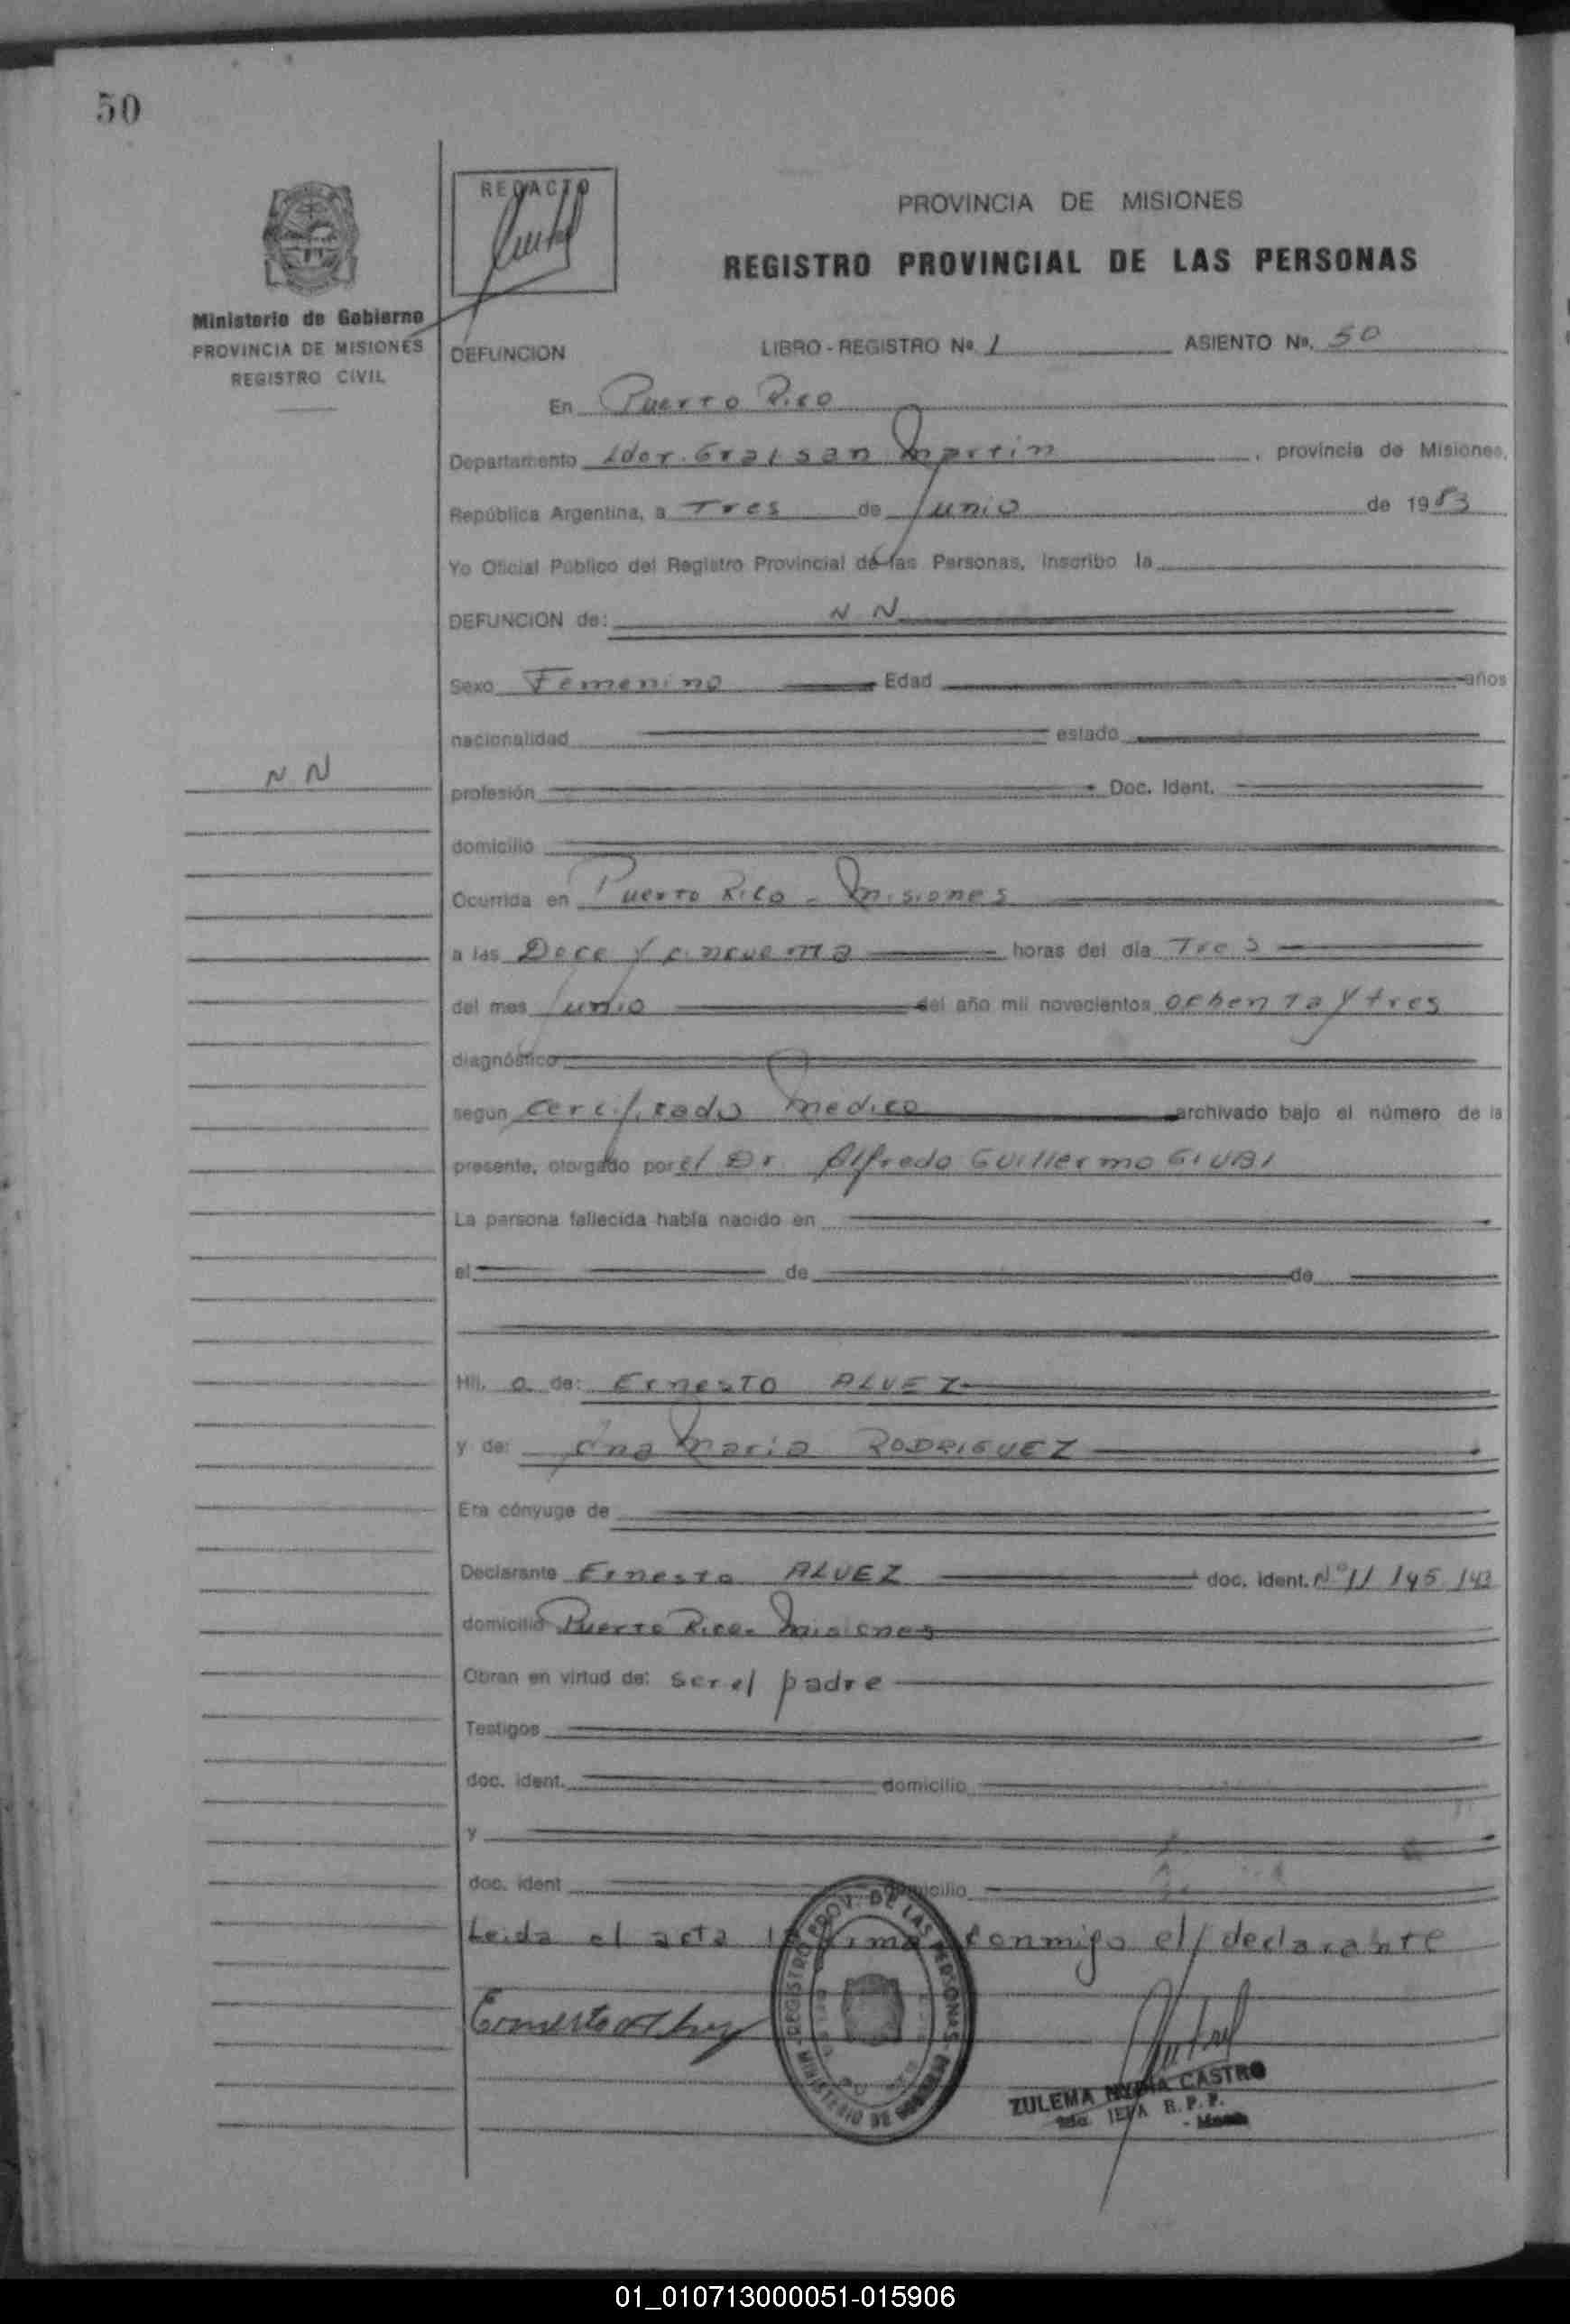 50
REDACTO
PROVINCIA DE MISIONES
REGISTRO PROVINCIAL DE LAS PERSONAS
Ministerio de Gobierno
PROVINCIA DE MISIONES
REGISTRO CIVIL
DEFUNCION LIBRO - REGISTRO Nº 1 ASIENTO Nº. 50
En Puerto Rico
Departamento Ldor. Gral San Martin, provincia de Misiones,
República Argentina, a Tres de Junio de 1983
Yo Oficial Público del Registro Provincial de las Personas, inscribo la
DEFUNCION de: N N
Sexo Femenino Edad años
nacionalidad estado
N N
profesión Doc. Ident.
domicilio
Ocurrida en Puerto Rico - Misiones
a las Doce y cincuenta horas del día Tres
del mes Junio del año mil novecientos ochenta y tres
diagnóstico
según certificado medico archivado bajo el número de la
presente, otorgado por el Dr. Alfredo Guillermo GIUBI
La persona fallecida había nacido en
el de de
Hij. a de: Ernesto ALVEZ
y de: Ana Maria RODRIGUEZ
Era cónyuge de
Declarante Ernesto ALVEZ doc. ident. Nº 11 145 143
domicilio Puerto Rico - Misiones
Obran en virtud de: ser el padre
Testigos
doc. ident. domicilio
y
doc. ident domicilio
Leida el acta la firma conmigo el declarante
REGISTRO PROV. DE LAS PERSONAS
MINISTERIO DE
ZULEMA NYDIA CASTRO
JEFA R. P. P.
01_010713000051-015906